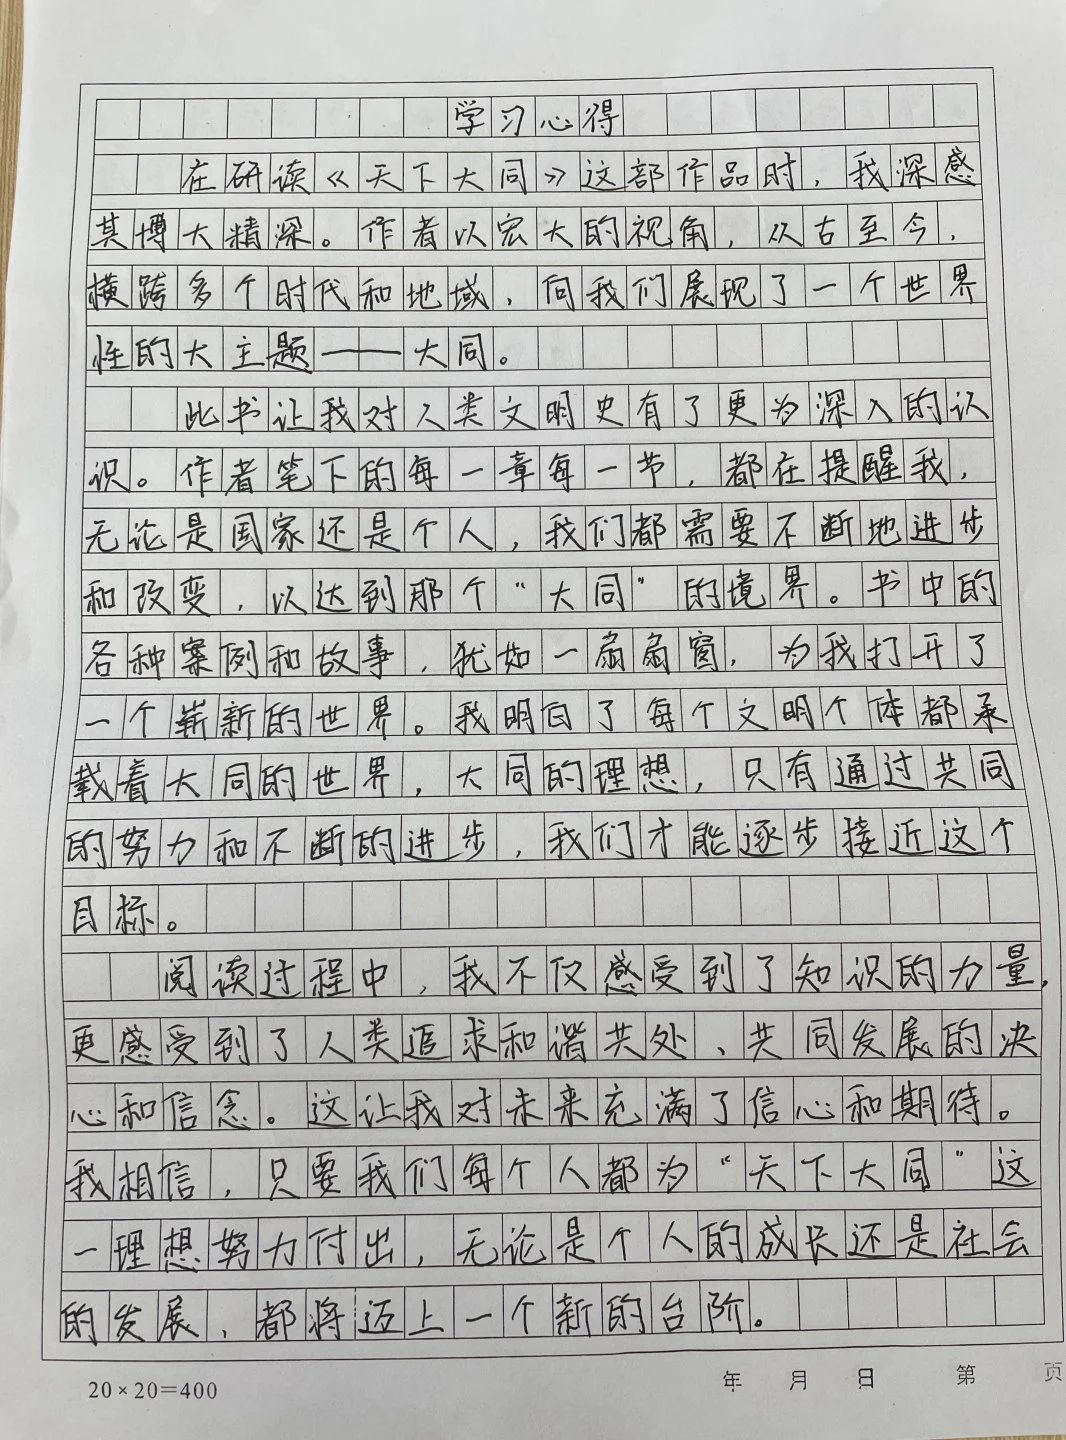 学习心得
在研读《天下大同》这部作品时，我深感
其博大精深。作者以宏大的视角，从古至今，
横跨多个时代和地域，向我们展现了一个世界
性的大主题——大同。
此书让我对人类文明史有了更为深入的认
识。作者笔下的每一章每一节，都在提醒我，
无论是国家还是个人，我们都需要不断地进步
和改变，以达到那个“大同”的境界。书中的
各种案例和故事，犹如一扇扇窗，为我打开了
一个崭新的世界。我明白了每个文明个体都承
载着大同的世界，大同的理想，只有通过共同
的努力和不断的进步，我们才能逐步接近这个
目标。
阅读过程中，我不仅感受到了知识的力量，
更感受到了人类追求和谐共处、共同发展的决
心和信念。这让我对未来充满了信心和期待。
我相信，只要我们每个人都为“天下大同”这
一理想努力付出，无论是个人的成长还是社会
的发展，都将迈上一个新的台阶。
20×20=400 年 月 日 第 页